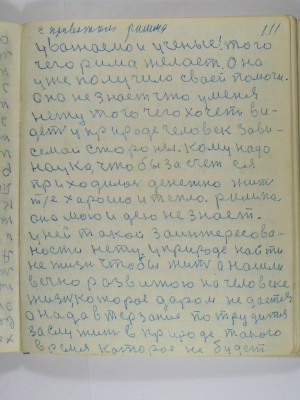 с приветом римма
111
уважаемои ученые! того
чего рима желает. Она
уже получило своей помочи.
она не знает что у меня
нету того чего хочеть ви-
деть у природе человек зави-
семай стороня. Кому надо
наука, чтобы за счет ея
приходилося денежно жить
т/е харошо и тепло. римка
она мою идею не знает.
у ней такой заинтересова-
ности нету у природе найти
не жизнь чтобы жить а нашли
вечно розвитою на человеке
жизнь, которое даром не дается
а нада в терзание потрудится
заслужить в природе такого
время которое не будет